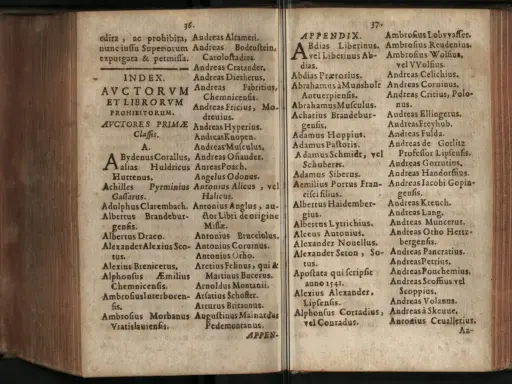 36.
edita, ac prohibita,
nunc iussu Superiorum
expurgata & permissa.
INDEX
AVCTORVM
ET LIBRORVM
PROHIBITORVM.
AVCTORES PRIMÆ
Classis.
A.
AbydenusCorallus,
alias Huldricus
Huttenus.
Achilles Pyrminius
Gassarus.
Adolphus Clarembach.
Albertus Brandebur-
gensis.
Albertus Draco.
AlexanderAlexius Sco-
tus.
Alexius Brenicerus.
Alphonsus Æmilius
Chemnicensis.
AmbrosiusInterbocen-
sis.
Ambrosius Morbanus
Vratislauiensis.
Andreas Altameri.
Andreas Bodenstein,
Carolostadius.
Andreas Cratander.
Andreas Dietherus.
Andreas Fabritius,
Chemnicensis.
Andreas Fricius, Mo-
dreuius.
Andreas Hyperius.
AndreasKnopen.
AndreasMusculus.
Andreas Osiander.
Andreas Posch.
Angelus Odonus.
Antonius Alicus, vel
Halicus.
Antonius Anglus, au-
ctor Libri de origine
Missæ.
Antonius Brucciolus.
Antonius Coruinus.
Antonius Otho.
Aretius Felinus, qui &
Martinus Bucerus.
Arnoldus Montanii.
Arsatius Schoffer.
Arturus Britannus.
Augustinus Mainardus
Pedemontanus.
APPEN-
37.
APPENDIX.
Abdias Liberinus,
vel Liberinus Ab-
dias.
Abdias Prætorius.
Abrahamus à Munsholt
Antuerpiensis.
AbrahamusMusculus.
Achatius Brandebur-
gensis.
Adamus Hoppius.
Adamus Pastoris.
AdamusSchmidt, vel
Schuberts.
Adamus Siberus.
Aemilius Portus Fran-
cisci filius.
Albertus Haidember-
gius.
Albertus Lytrichius.
Alceus Antonius.
Alexander Nouellus.
Alexander Seton, Sco-
tus.
Apostata qui scripsit
anno 1541.
Alexius Alexander,
Lipsensis.
Alphonsus Corradius,
vel Conradus.
Ambrosius Lobvvasser.
Ambrosius Reudenius.
Ambrosius Wolfius,
vel VVolfius.
Andreas Celichius.
Andreas Coruinus.
Andreas Critius, Polo-
nus.
Andreas Ellingerus.
AndreasFreyhub.
Andreas Fulda.
Andreas de Gorlitz
Professor Lipsensis.
Andreas
Andreas Handorffius.
Andreas Iacobi Gopin-
gensis.
Andreas Kreuch.
Andreas Lang.
Andreas Muncerus.
Andreas Otho Hertz-
bergensis.
Andreas Pancratius.
AndreasPetrius.
AndreasPouchemius.
Andreas Scoffius vel
Scoppius.
Andreas Volanus.
Andreas à Skeuue,
Antonius Ceuallerius.
An-